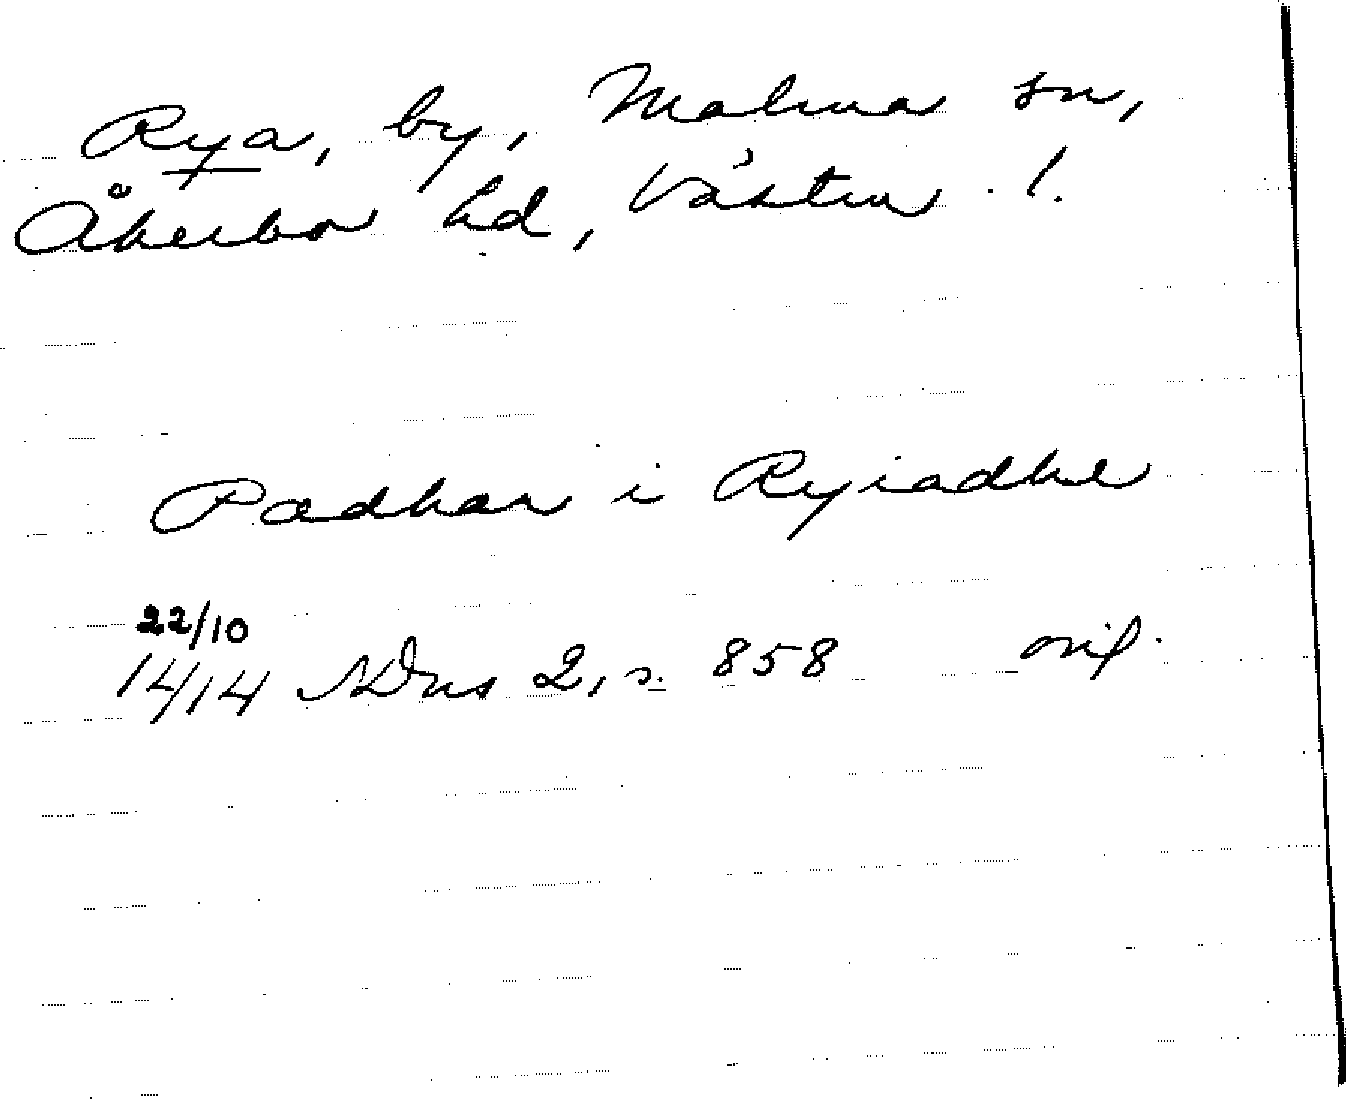 Rya, by, Malma sn,
Åkerbo hd, Västm. l.
Padhar i Ryiadhe
22/10
1414 SDns 2, s. 858 orig.